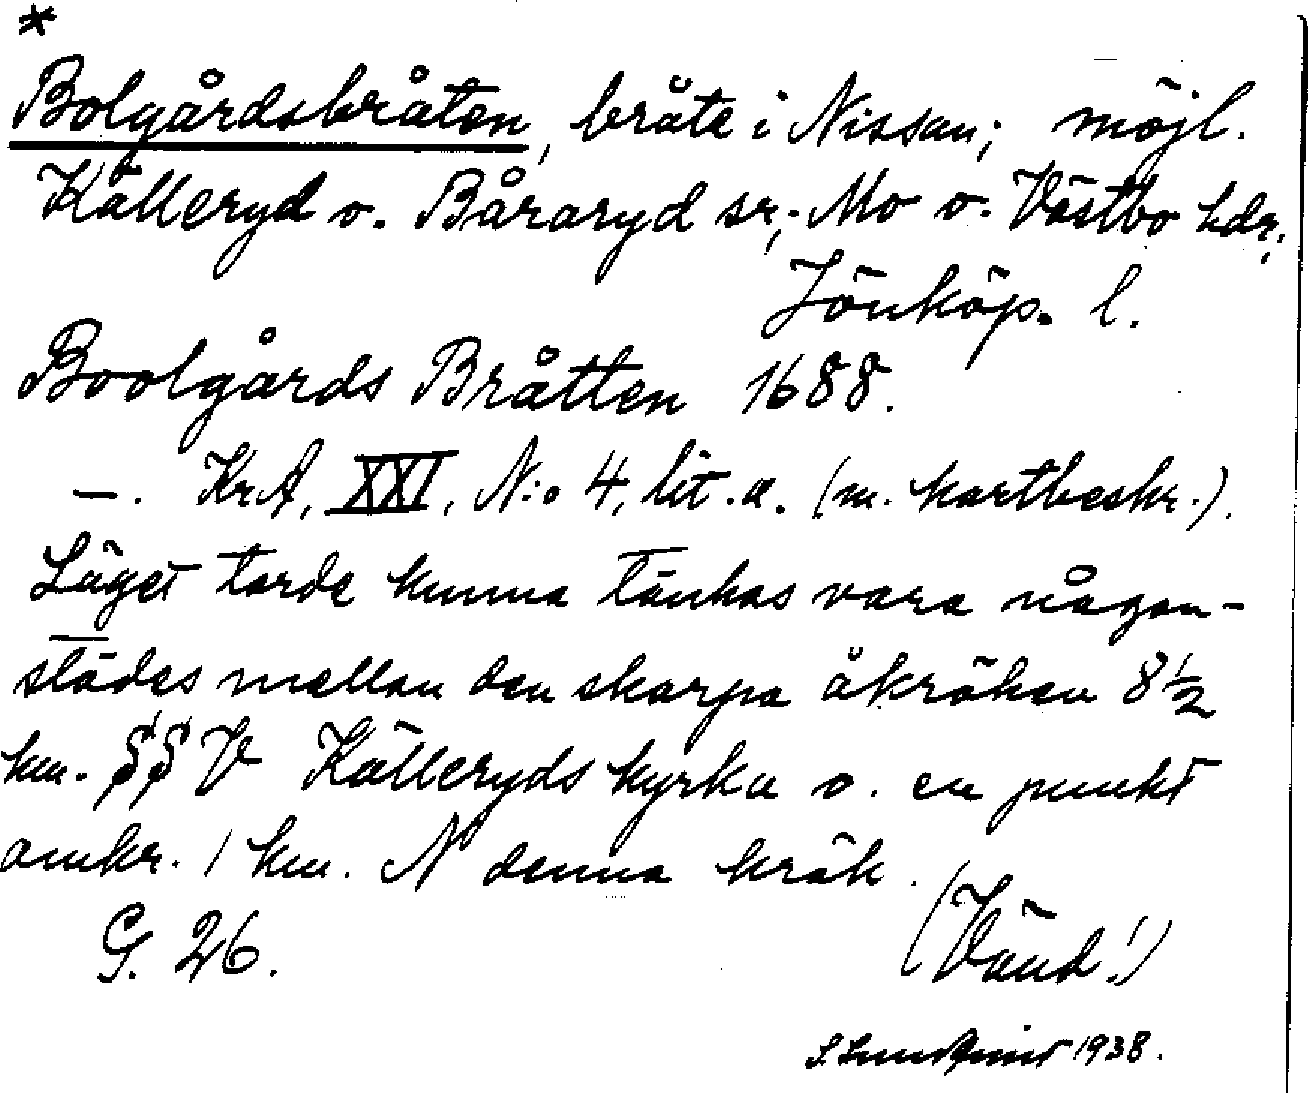 *
Bolgårdsbråten, bråte i Nissan; möjl.
Källeryd o. Båraryd sr; Mo o. Västbo hdr,
Jönköp. l.
Boolgårds Bråtten 1688.
—. KrA, XXI, N:o 4, lit. a. (m. kartbeskr.).
Läget torde kunna tänkas vara någon-
städes mellan den skarpa åkröken 8 1/2
km. SSV Källeryds kyrka o. en punkt
omkr. 1 km. N denna krök.
G. 26.
(Vänd!)
1938.